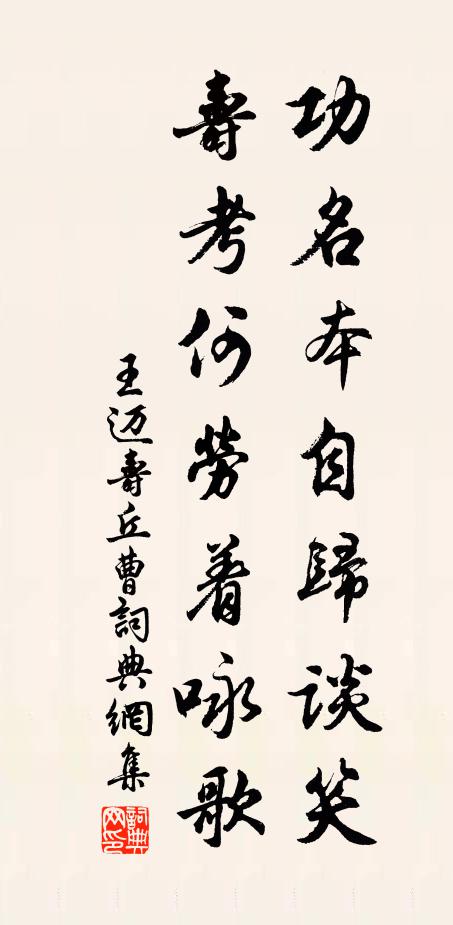 功名本自歸談笑
壽考何勞着咏歌
王迈壽丘曹詞典網集
詞典网印